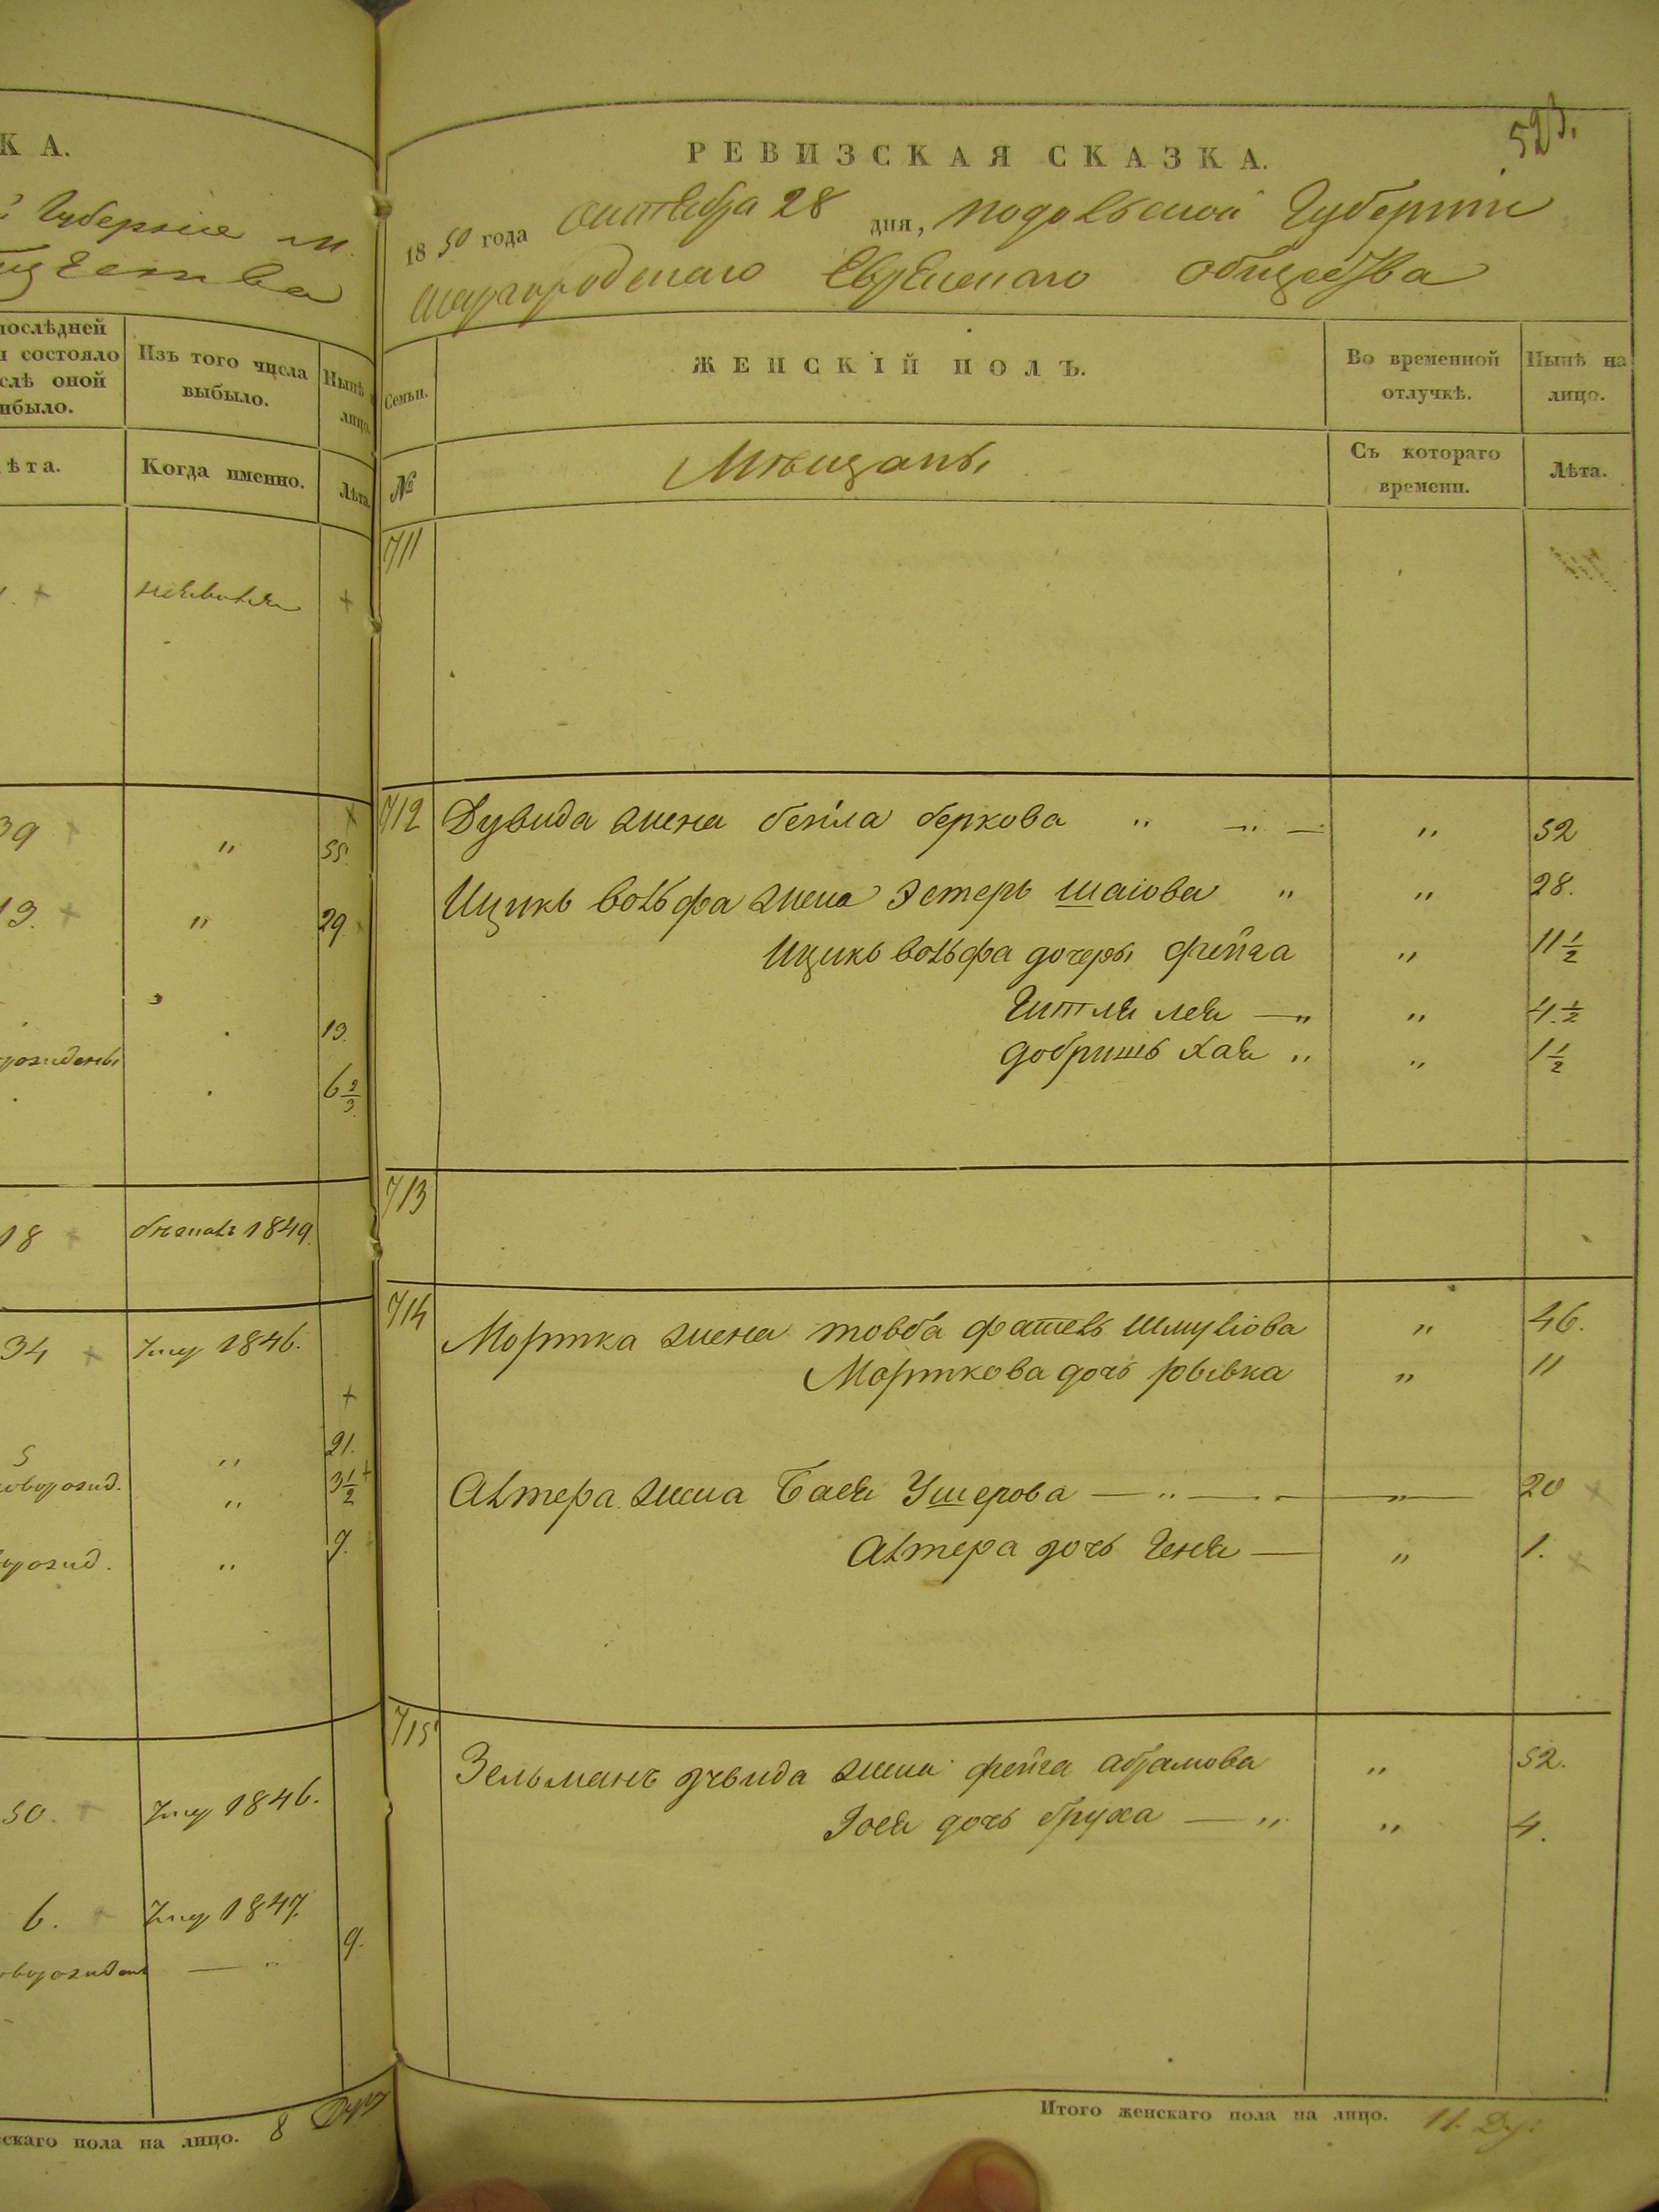 К А.
Губернiи м.
послѣдней
состояло
слѣ оной
было.
Изъ того числа
выбыло.
Нынѣ
лицо.
ѣта.
Когда именно.
Лѣта.
+
неявился
+
39 +
"
+
55.
13. +
"
29
13.
6 2/3
18 +
бѣжалъ 1849.
34 +
Умер 1846.
+
5
"
21.
новорожд.
"
3 1/2 +
"
7.
50. +
Умер 1846.
6. +
Умер 1847.
— "
9.
скаго пола на лицо. 8 Душ
523.
РЕВИЗСКАЯ СКАЗКА.
18 50 года Сентября 28 дня, Подольской Губернiи
Шаргородскаго Еврейскаго общества
Семьи.
ЖЕНСКІЙ ПОЛЪ.
Во временной
отлучкѣ.
Нынѣ на
лицо.
№
Мѣщаны
Съ котораго
времени.
Лѣта.
711
712 Дувида жена бейла беркова " —"— " 52
Ицикъ вольфа жена Эстеръ шаiова " " 28.
Ицикъ вольфа дочеры фейга " 11 1/2
Гитля лея —" " 4. 1/2
добришъ хая " " 1 1/2
713
714
Мортка жена товба фатель шмулiова " 46.
Морткова дочь рывка " 11
Альтера жена Бася Ушерова — " — " — 20 +
Альтера дочь Геня — " 1. +
715
Зельманъ дувида жена фейга абрамова " 52.
Іося дочь бруха — " " 4.
Итого женскаго пола на лицо. 11 Ду: